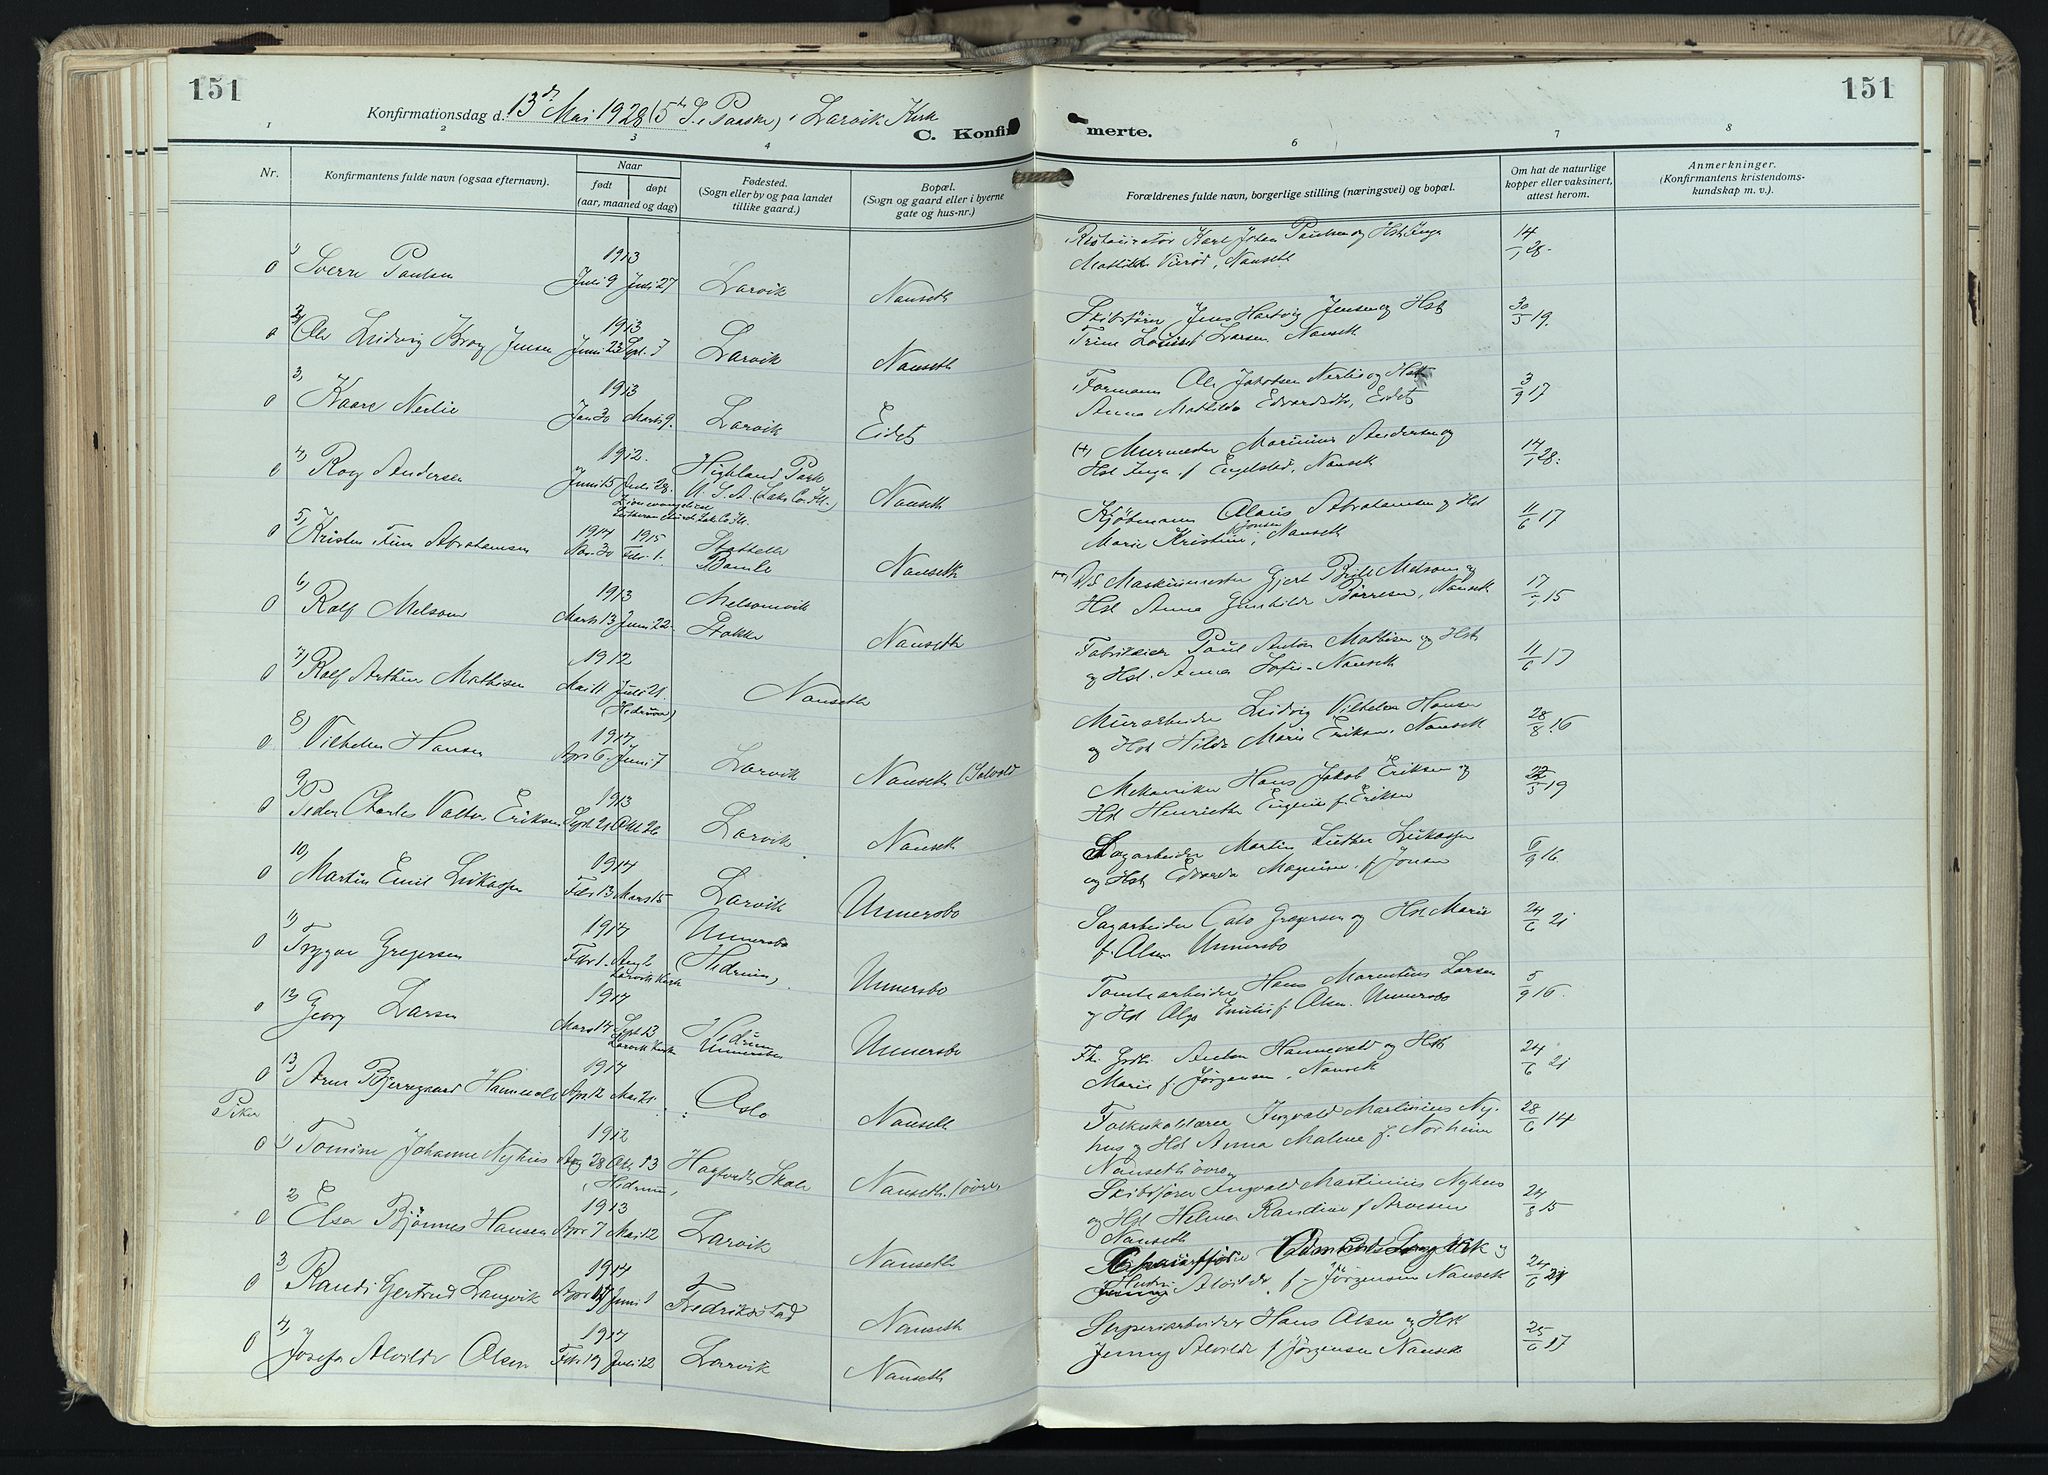 151
151
Konfirmationsdag d. 13de Mai 1928 (5te S. e. Paaske) i Larvik Kirk
C. Konfir merte.
1 2 3 4 6 7 8
Nr. Konfirmantens fulde navn (ogsaa efternavn). Naar født døpt (aar, maaned og dag) Fødested. (Sogn eller by og paa landet tillike gaard.) Bopæl. (Sogn og gaard eller i byerne gate og hus-nr.) Forældrenes fulde navn, borgerlige stilling (næringsvei) og bopæl. Om hat de naturlige kopper eller vaksinert, attest herom. Anmerkninger. (Konfirmantens kristendomskundskap m. v.).
0 1) Sverre Paulsen 1913 Juli 9 Juli 27 Larvik Nanseth
Restauratør Karl Johan Paulsen og Hst Inga
Mathilde Vierød, Nanseth 14/1 28.
0 2) Ole Ludvig Krog Jensen 1913 Juni 23 Sept. 7 Larvik Nanseth
Skibsfører Jens Hartvig Jensen og Hst
Trine Louise Larsen Nanseth 30/5 19.
0 3) Kaare Nerlie 1913 Jan 30 Marts 9. Larvik Eidet
Formann Ole Jakobsen Nerlie og Hst
Anna Mathilde Edvardsdtr, Eidet 3/9 17
0 4) Roy Andersen 1912. Juni 15 Juli 28. Highland Park
U.S.A. (Lake Co. Ill.) Nanseth
Zion evangelical
Lutheran church Lake Co. Ill.
(+) Murmester Marinius Andersen og
Hst Inga f. Engelsted, Nanseth 14/1 28.
0 5) Kristen Finn Abrahamsen 1914 Nov. 30 1915 Febr. 1. Stathelle
Bamle Nanseth
Kjøbmann Olaus Abrahamsen og Hst
Marie Kristine Jonsen, Nanseth 11/6 17
0 6) Rolf Melsom 1913 Marts 13 Juni 22 Melsomvik
Stokke Nanseth
D/S Maskinmester Gjert Melsom og
Hst Anna Gunhilde Børresen, Nanseth 17/7 15
0 7) Rolf Arthur Mathisen 1912 Mai 11 Juli 21. (Hedrum) Nanseth
Fabrikeier Paul Anton Mathisen og Hst
og Hst. Anna Sofie Nanseth 11/6 17
0 8) Vilhelm Hansen 1914 Apr 6. Juni 7 Larvik Nanseth
Murarbeider Ludvig Vilhelm Hansen
og Hst Hilda Marie Eriksen, Nanseth 28/8 16
0 9) Peder Charles Valter Eriksen 1913 Sept 21 Okt 26 Larvik Nanseth
Mekaniker Hans Jakob Eriksen og
Hst Henriette Eugenie f. Eriksen 22/5 19
0 10) Martin Emil Lukassen 1914 Febr 13 Mars 15 Larvik Unnersbo
Sagarbeider Martin Luther Lukassen
og Hst Edvarda Magnine f. Jonsen 6/9 16.
0 11) Trygve Gregersen 1914 Febr 1. Aug 2 Larvik Kirk Unnersbo
(Hedrum) Unnersbo
Sagarbeider Carlo Gregersen og Hst Marie
f. Olsen Unnersbo 24/6 21
0 12) Georg Larsen 1914 Mars 14 Sept 13 Larvik Kirk Hedrum
Unnersbo Unnersbo
Tomtearbeider Hans Marentius Larsen
og Hst Olga Emilie f. Olsen. Unnersbo 5/9 16.
0 13) Arne Bjerregaard Hannevold 1914 Apr 12 Mai 21. Oslo Nanseth
Fhv. Grdbr. Anton Hannevold og Hst
Marie f. Jørgensen, Nanseth 24/6 21
Piker
0 1) Tomine Johanne Nyhus 1912 Aug 28 Okt 13 (Hedrum) Hagtvedt Skole Nanseth (øvre
Folkeskolelærer Ingvald Martinius Nyhus
og Hst Anna Malene f. Norheim
Nanseth øvre 28/6 14
0 2 Elsa Bjønnes Hansen 1913 Apr 7 Mai 12 Larvik Nanseth
Skibsfører Ingvald Martinius
og Hst Helma Randine f. Arvesen
Nanseth 24/8 15
0 3 Randi Gertrud Langvik 1914 Apr Juni 1 Fredrikstad Nanseth
og
Alvilde f. Jørgensen Nanseth 24/6 21
0 4) Josefa Alvilde Olsen 1914 Febr 19 Juli 12 Larvik Nanseth
Hans Olsen og Hst
Jenny Alvilde f. Jørgensen Nanseth 25/6 17